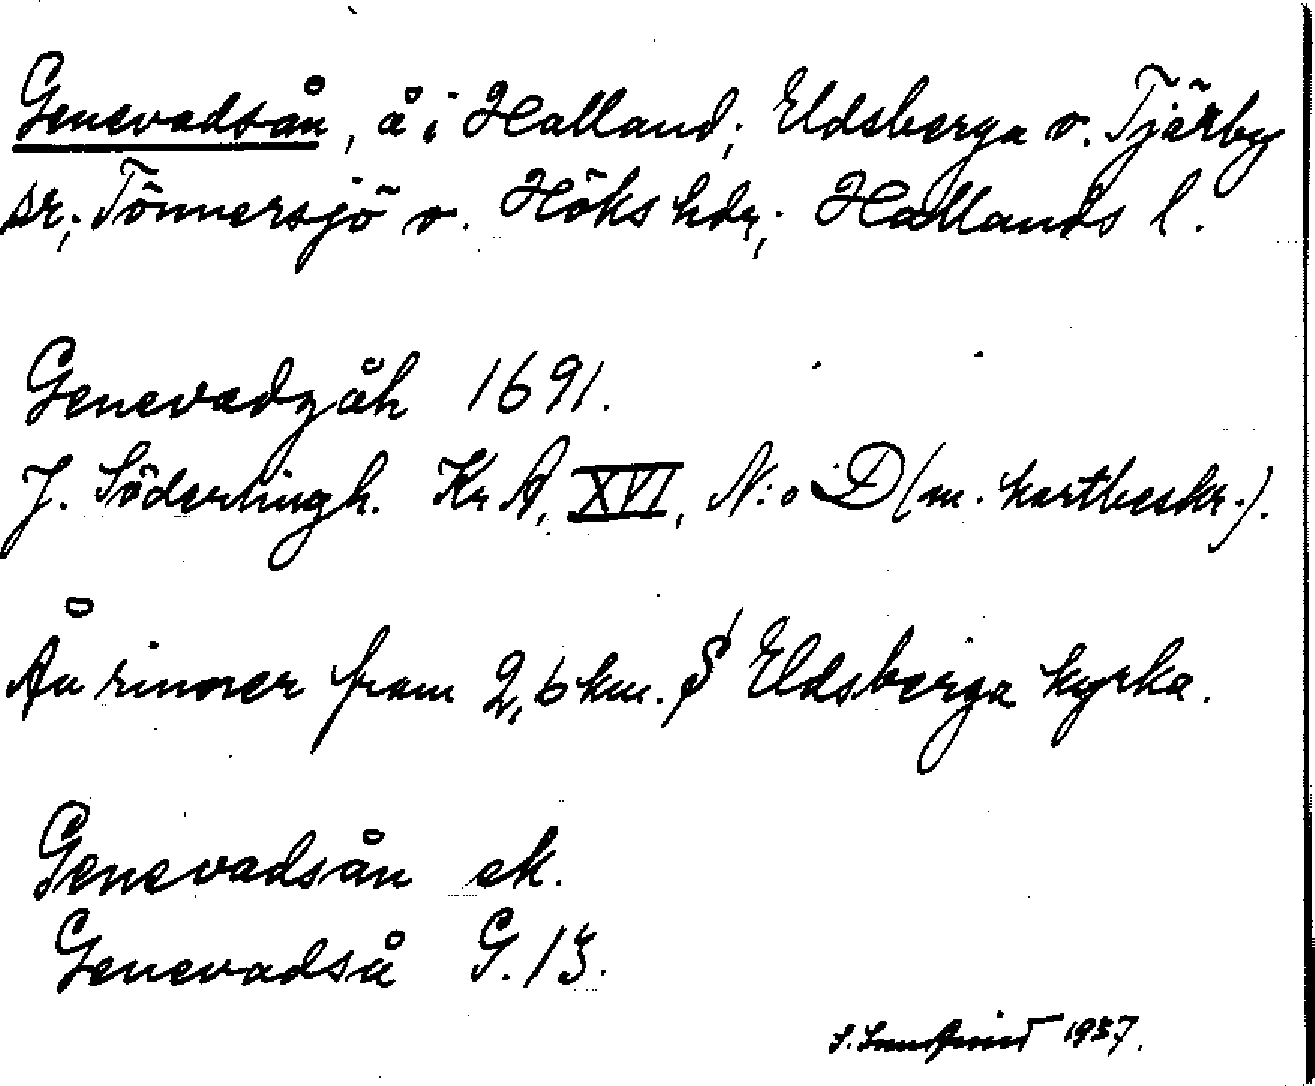 Genevadsån, å i Halland; Eldsberga o. Tjärby
sr; Tönnersjö o. Höks hdr; Hallands l.
Genevadzåh 1691.
J. Söderlingh. Kr A, XVI, N:o D (m. kartbeskr.).
Ån rinner fram 2,6 km. S Eldsberga kyrka.
Genevadsån ek.
Genevadså G. 13.
1937.